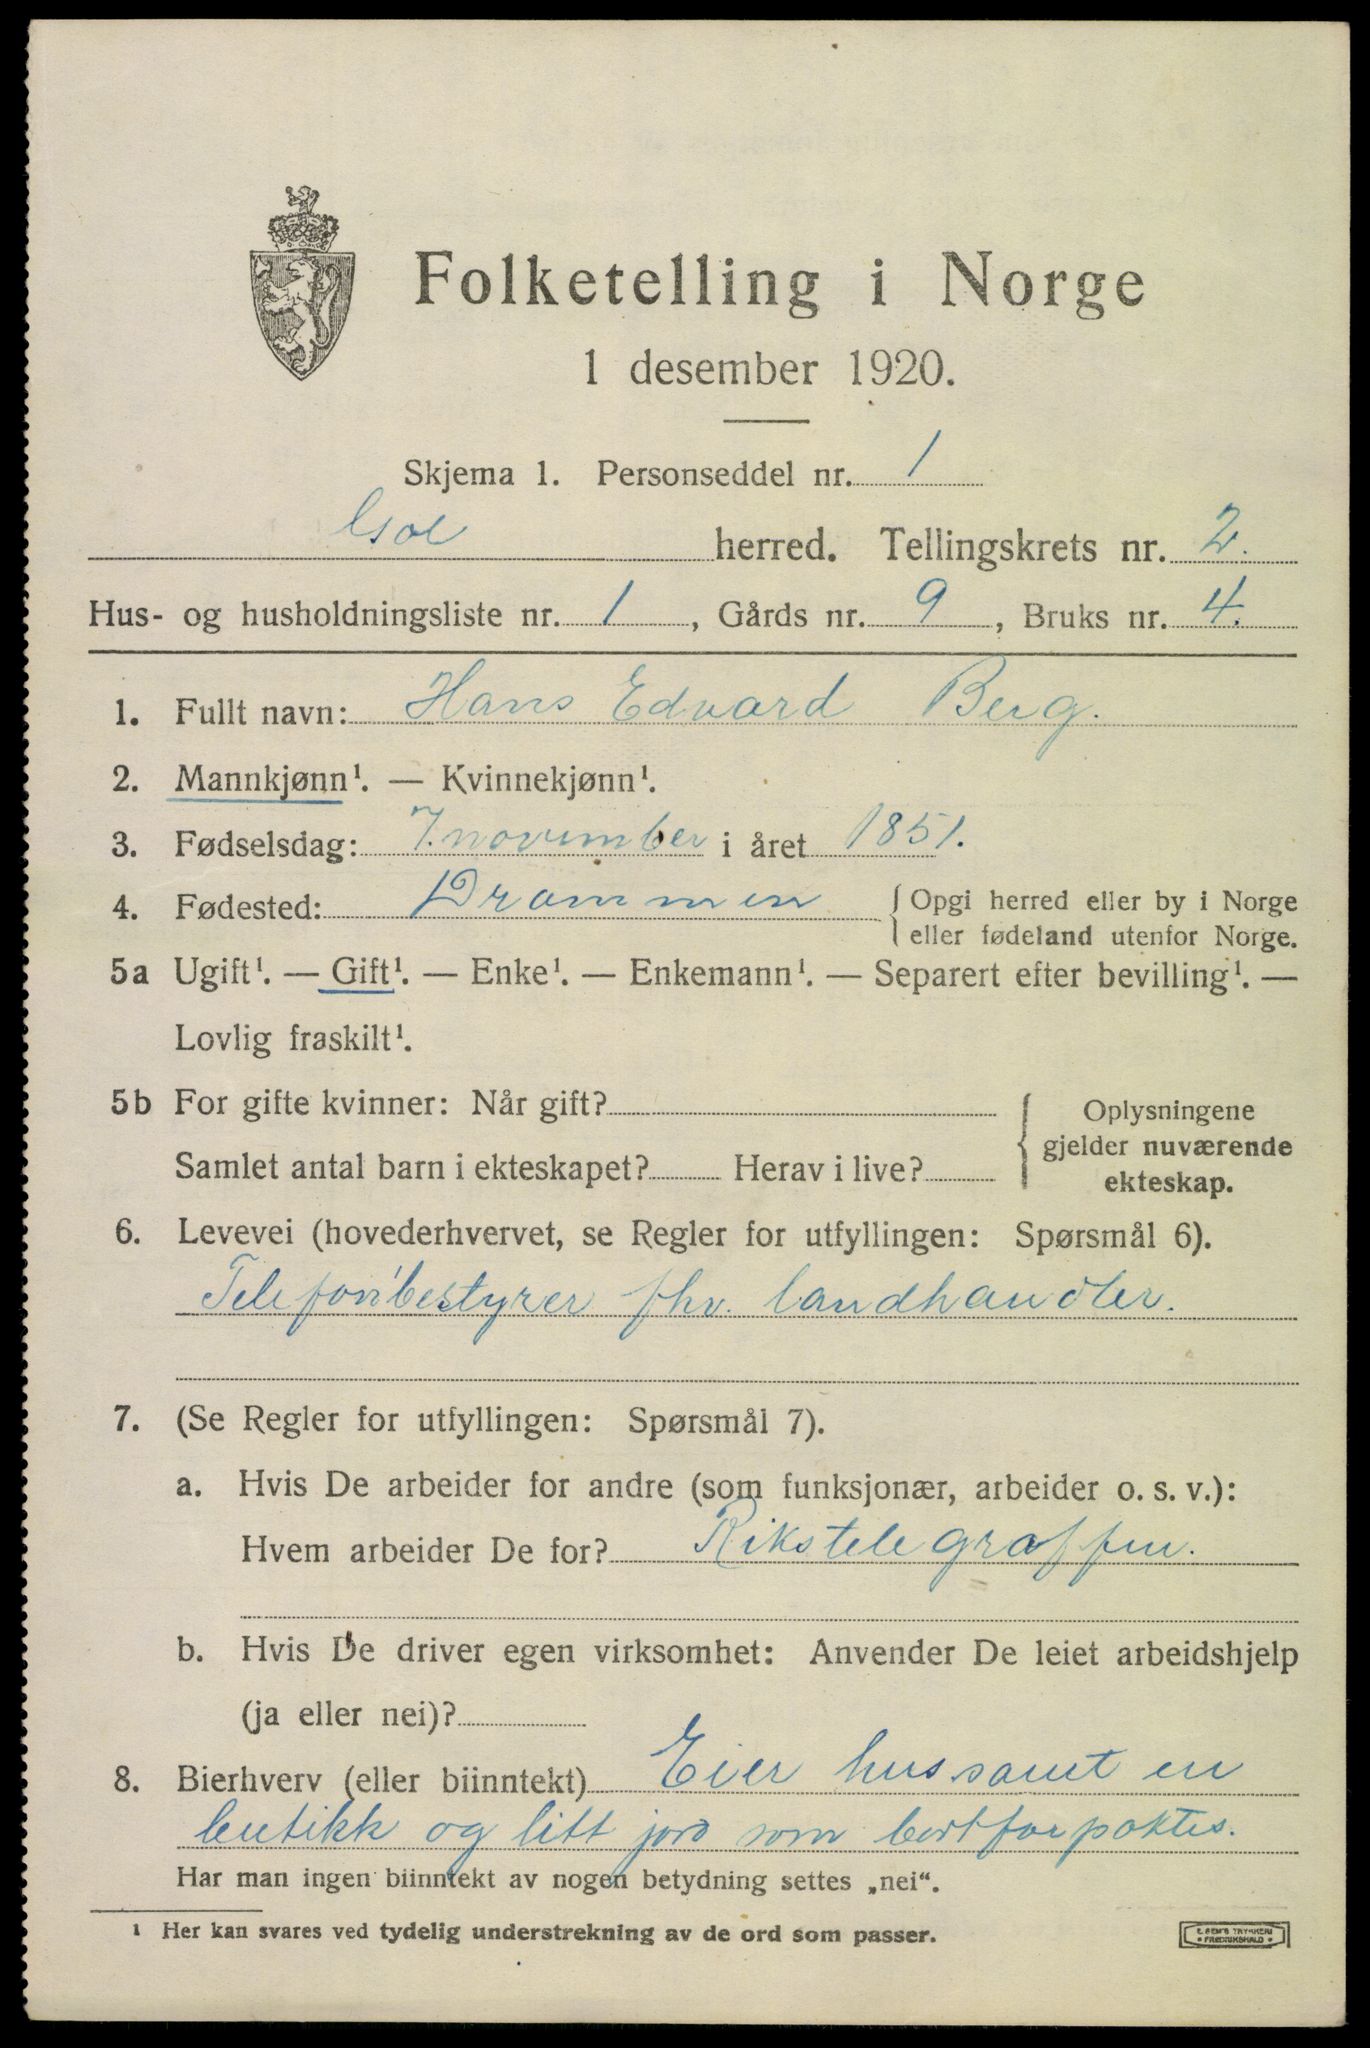 Folketelling i Norge
1 desember 1920.
Skjema 1. Personseddel nr. 1
Gol herred. Tellingskrets nr. 2.
Hus- og husholdningsliste nr. 1, Gårds nr. 9, Bruks nr. 4.
1. Fullt navn: Hans Edvard Berg.
2. Mannkjønn¹. — Kvinnekjønn¹.
3. Fødselsdag: 7. november i året 1851.
4. Fødested: Drammen { Opgi herred eller by i Norge
eller fødeland utenfor Norge.
5a Ugift¹. — Gift¹. — Enke¹. — Enkemann¹. — Separert efter bevilling¹. —
Lovlig fraskilt¹.
5b For gifte kvinner: Når gift?
Samlet antal barn i ekteskapet? Herav i live?
{ Oplysningene
gjelder nuværende
ekteskap.
6. Levevei (hovederhvervet, se Regler for utfyllingen: Spørsmål 6).
Telefonbestyrer fhv. landhandler.
7. (Se Regler for utfyllingen: Spørsmål 7).
a. Hvis De arbeider for andre (som funksjonær, arbeider o. s. v.):
Hvem arbeider De for? Rikstelegraffen.
b. Hvis De driver egen virksomhet: Anvender De leiet arbeidshjelp
(ja eller nei)?
8. Bierhverv (eller biinntekt) Eier hus samt en
butikk og litt jord som bortforpaktes.
Har man ingen biinntekt av nogen betydning settes „nei“.
¹ Her kan svares ved tydelig understrekning av de ord som passer.
E. SEM'S TRYKKERI
FREDRIKSHALD